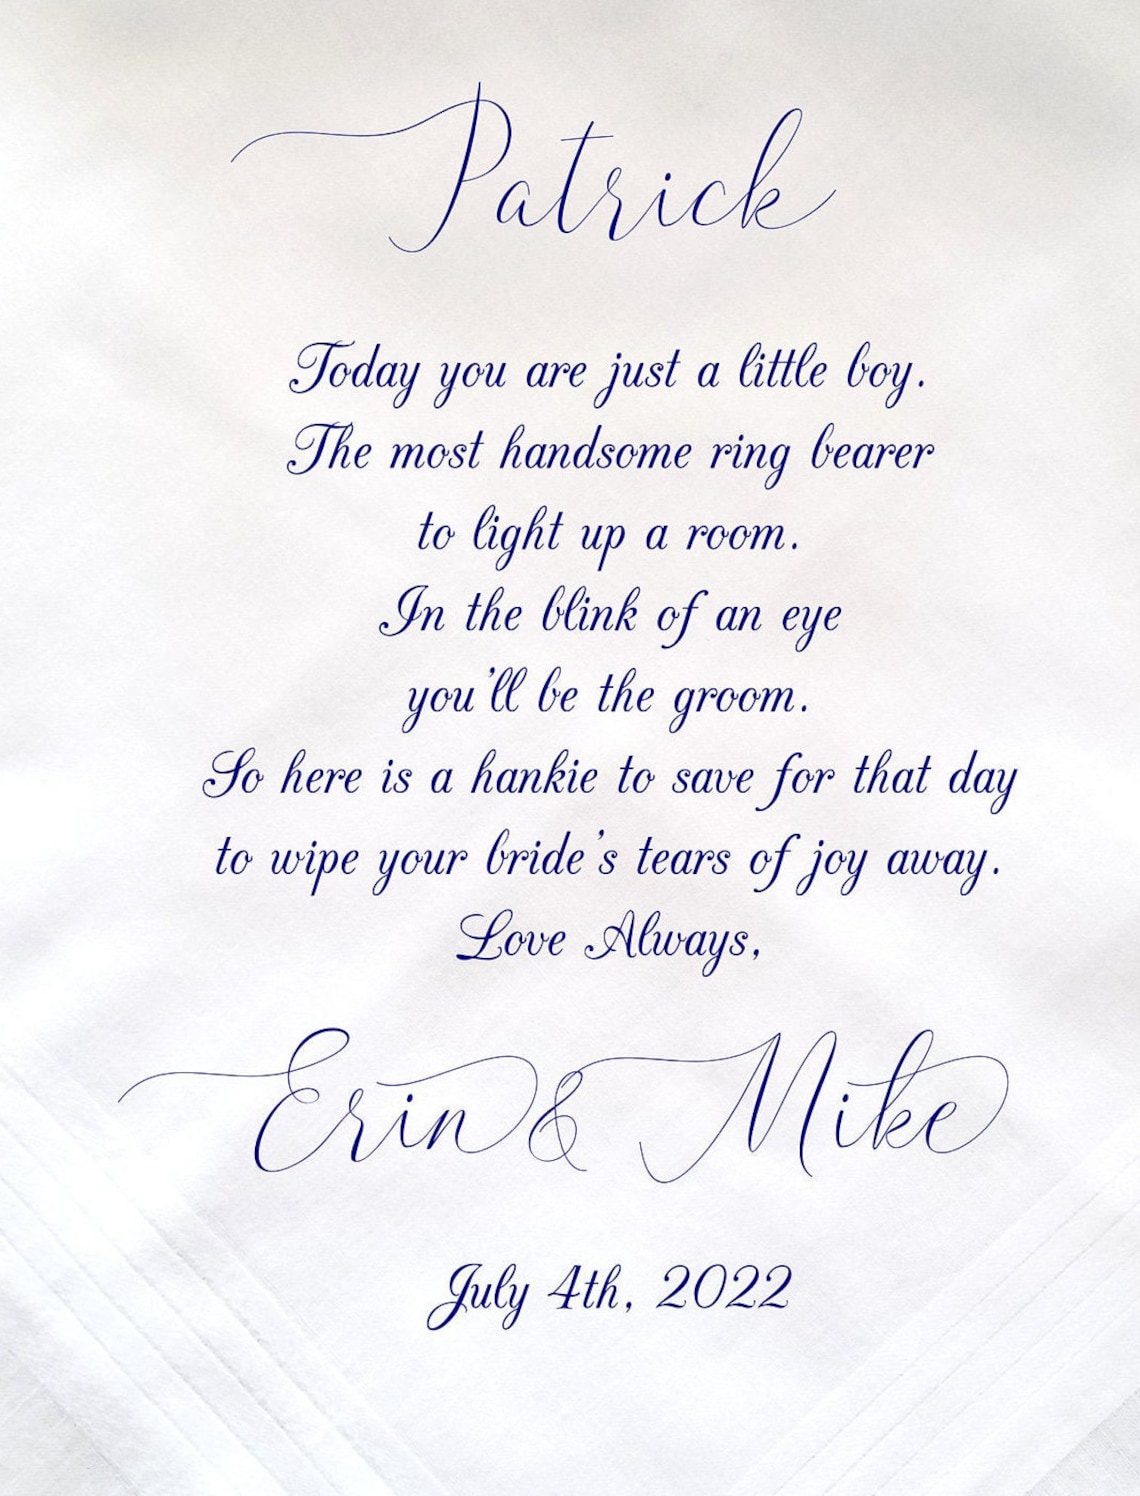 Patrick
Today you are just a little boy.
The most handsome ring bearer
to light up a room.
In the blink of an eye
you'll be the groom.
So here is a hankie to save for that day
to wipe your bride's tears of joy away.
Love Always,
Erin & Mike
July 4th, 2022